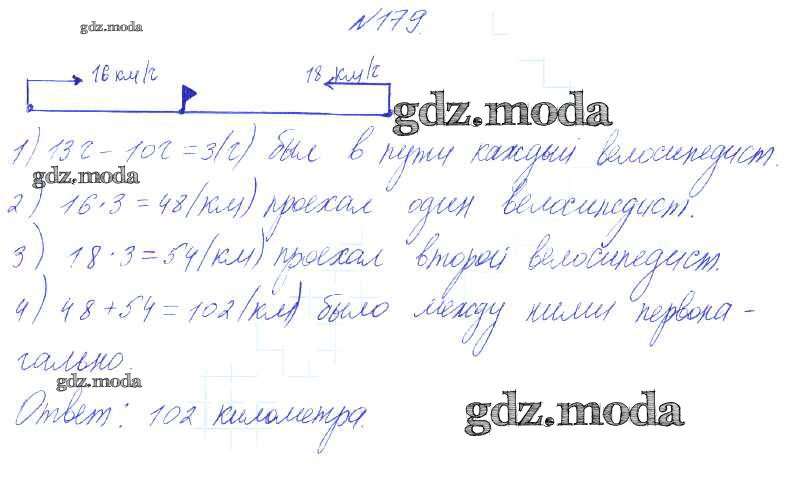 №179.
gdz.moda
16 км/ч 18 км/ч
gdz.moda
1) 13ч - 10ч = 3(ч) был в пути каждый велосипедист.
gdz.moda
2) 16·3 = 48 (км) проехал один велосипедист.
3) 18·3 = 54 (км) проехал второй велосипедист.
4) 48 + 54 = 102 (км) было между ними первона-
чально.
gdz.moda
Ответ: 102 километра.
gdz.moda